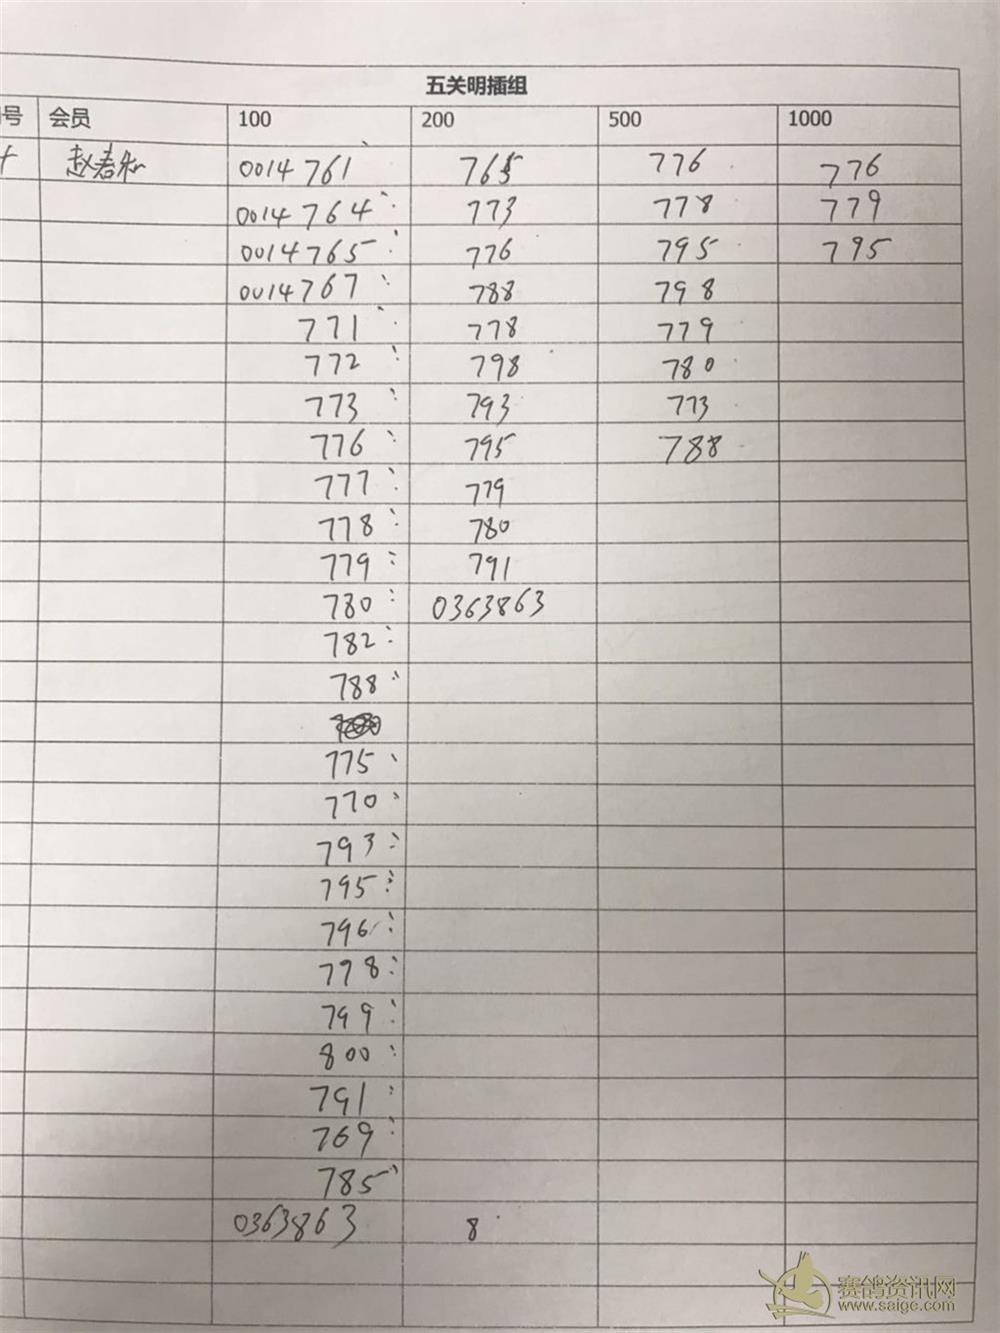 五关明插组
号 会员 100 200 500 1000
赵春和 0014761 765 776 776
0014764 773 778 779
0014765 776 795 795
0014767 788 798
771 778 779
772 798 780
773 793 773
776 795 788
777 779
778 780
779 791
780 0363863
782
788
775
770
793
795
796
798
799
800
791
769
785
0363863 8
赛鸽资讯网
www.saige.com